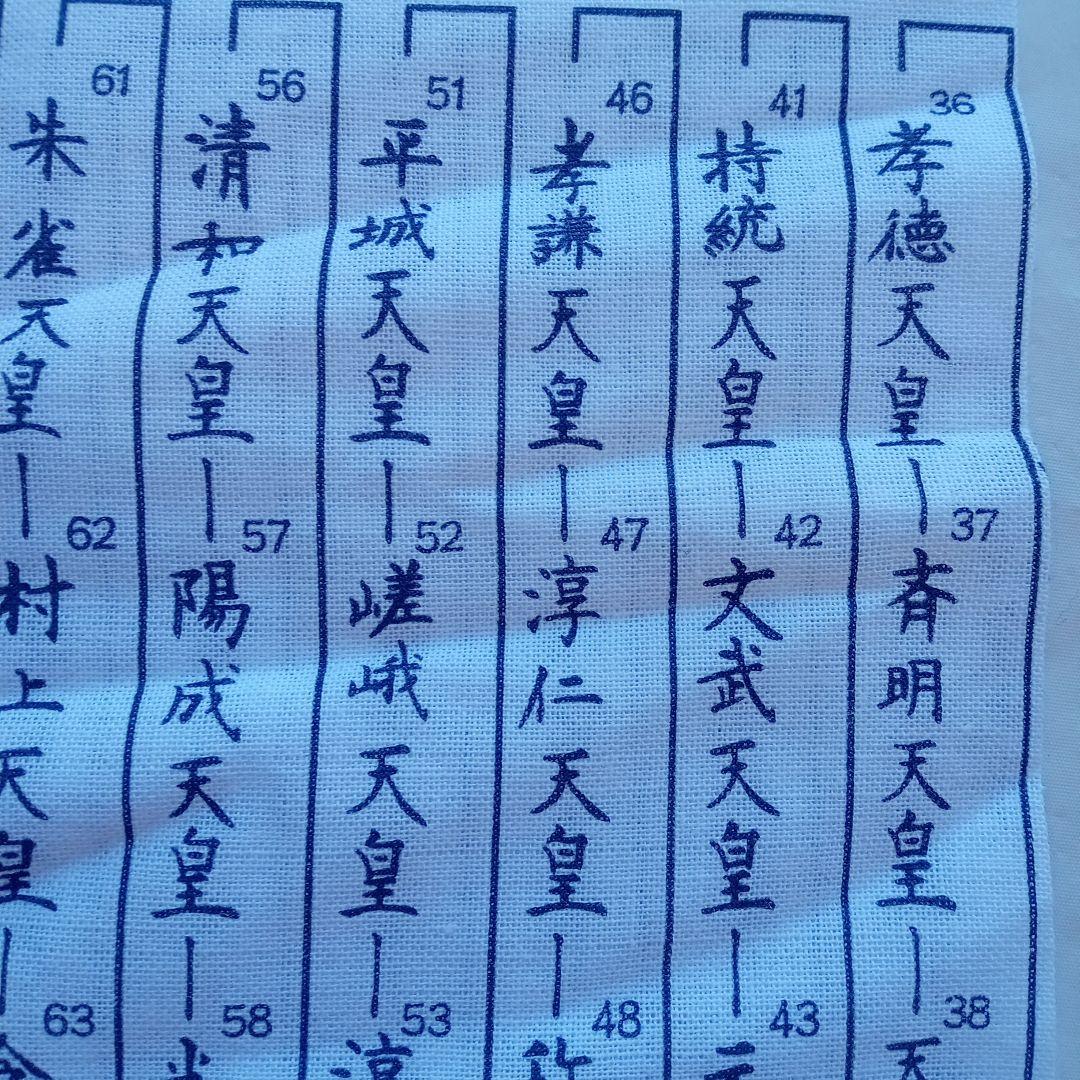 36
孝德天皇
37
斉明天皇
38
天
41
持統天皇
42
文武天皇
43
元
46
孝謙天皇
47
淳仁天皇
48
51
平城天皇
52
嵯峨天皇
53
淳
56
清和天皇
57
陽成天皇
58
光
61
朱雀天皇
62
村上天皇
63